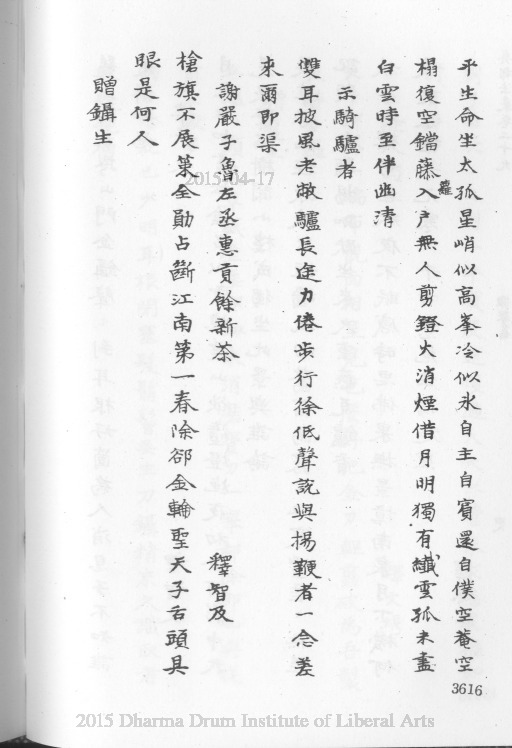 平生命坐太孤星峭似高峯冷似氷自主自賓還自僕空菴空
榻復空鐺藤蘿入户無人剪鐙火消煙借月明獨有纖雲孤未盡
白雲時至伴幽清
示騎驢者
雙耳披風老敝驢長途力倦步行徐低聲説與揚鞭者一念差
來爾即渠
謝嚴子魯左丞惠貢餘新茶
釋智及
槍旗不展策全勛占斷江南第一春除卻金輪聖天子舌頭具
眼是何人
贈鑷生
3616
2015-04-17
2015 Dharma Drum Institute of Liberal Arts